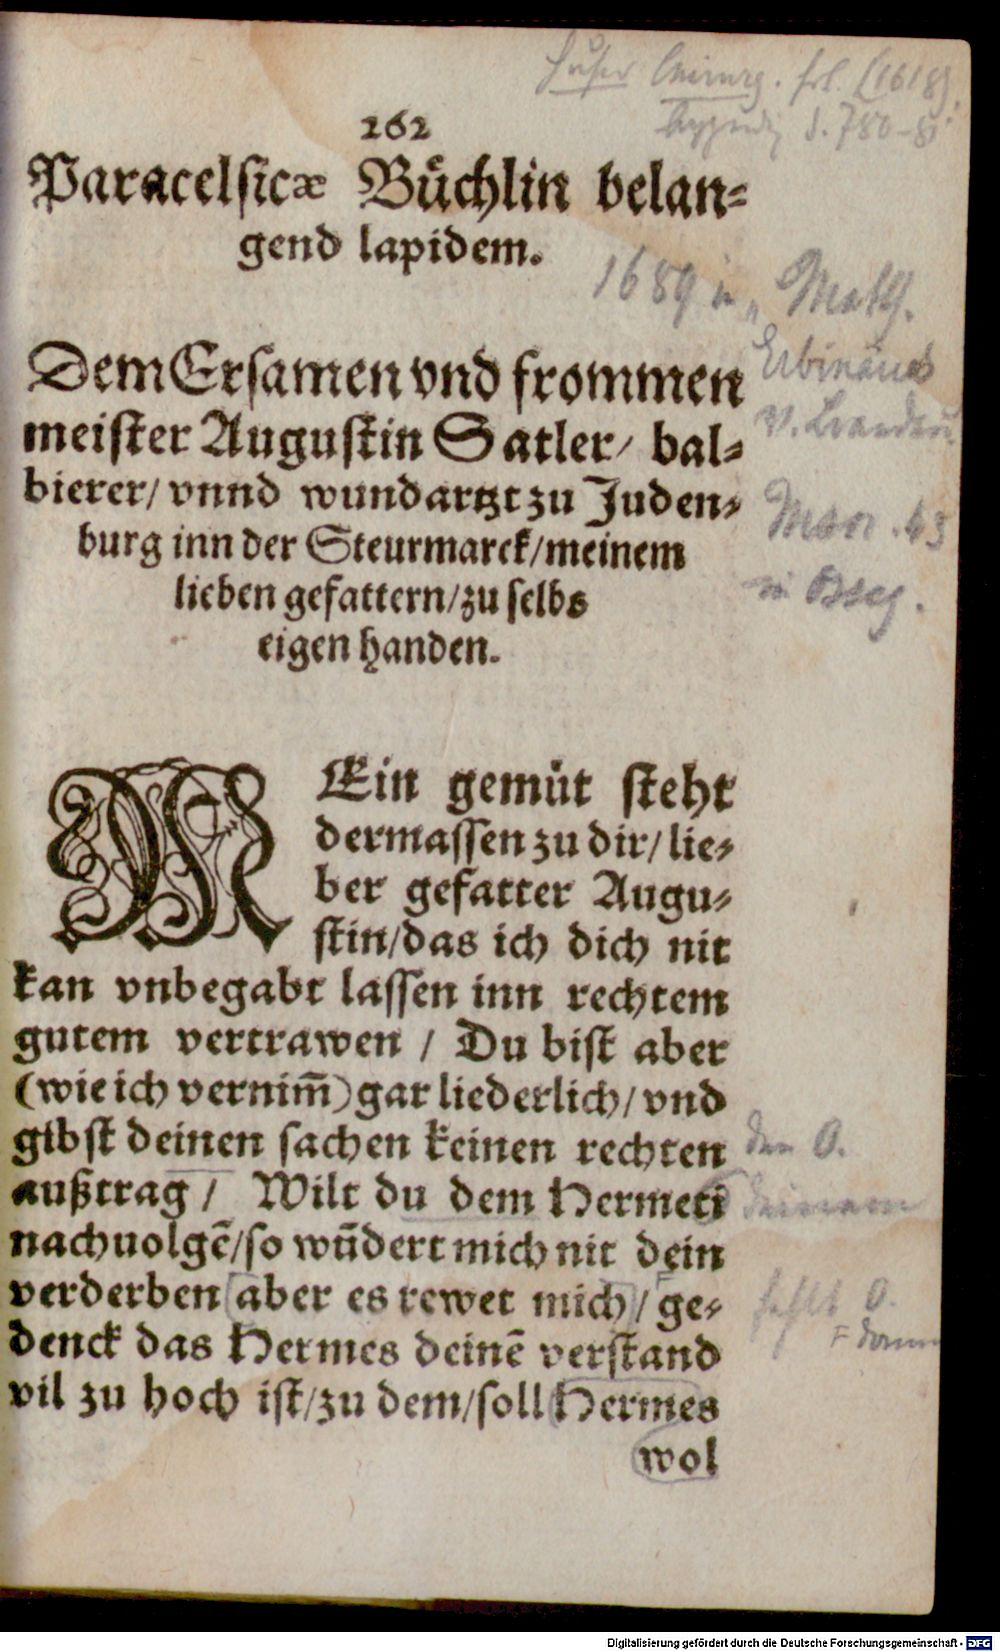 Huser Chirurg. fol. (1618).
S. 780-81
262
Paracelsicæ Bůchlin belan⸗
gend lapidem.
1689 in „Math.
Erbinäus
v. Brandau
Man. 43
in Bseg.
Dem Ersamen vnd frommen
meister Augustin Satler/ bal⸗
bierer/ vnnd wundartzt zu Juden⸗
burg inn der Steurmarck/ meinem
lieben gefattern/ zu selbs
eigen handen.
MEin gemůt steht
dermassen zu dir/ lie⸗
ber gefatter Augu⸗
stin/ das ich dich nit
kan vnbegabt lassen inn rechtem
gutem vertrawen / Du bist aber
(wie ich vernim̃) gar liederlich/ vnd
gibst deinen sachen keinen rechten
den O.
außtrag / Wilt du dem Hermeti
deinem
nachuolgẽ/ so wũdert mich nit dein
verderben aber es rewet mich / ge⸗
fehlt O.
denck das Hermes deinẽ verstand
F dann
vil zu hoch ist/ zu dem/ soll Hermes
wol
Digitalisierung gefördert durch die Deutsche Forschungsgemeinschaft - DFG